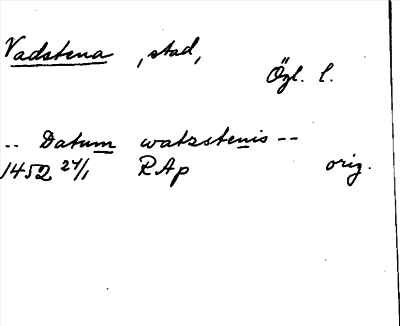 Vadstena, stad,
Ögl. l.
-- Datum watzstenis --
1452 24/1 RAp orig.